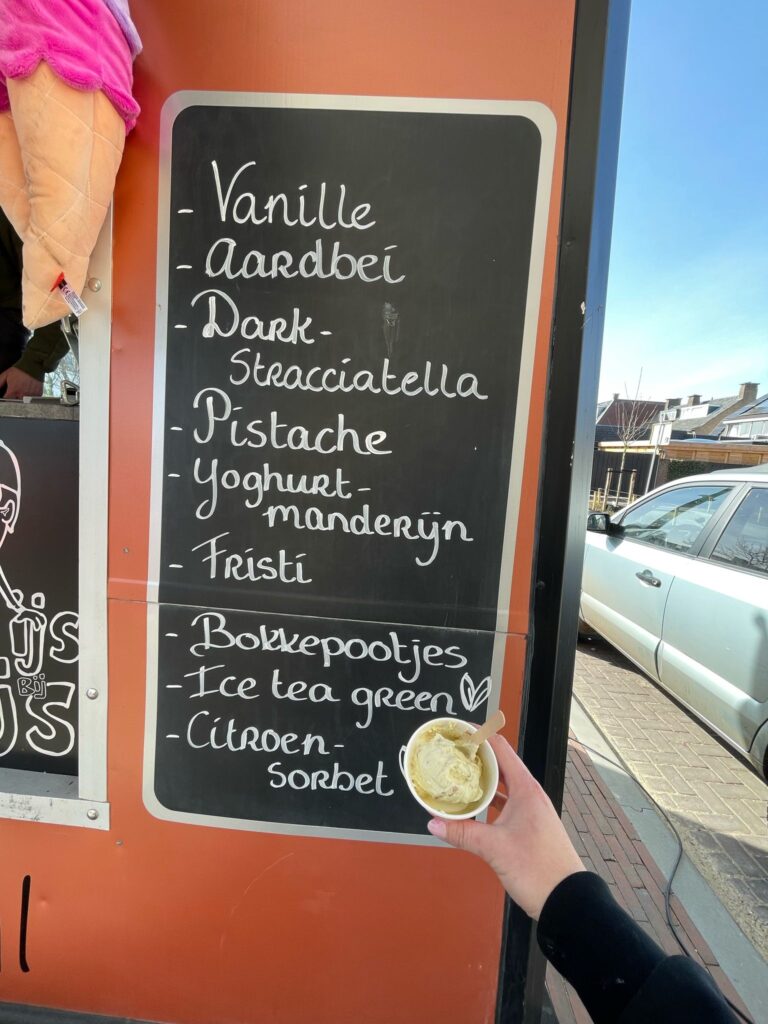 - Vanille
- Aardbei
- Dark-
Stracciatella
- Pistache
- Yoghurt-
manderijn
- Fristi
- Bokkepootjes
- Ice tea green
- Citroen-
sorbet
ijs
Bij